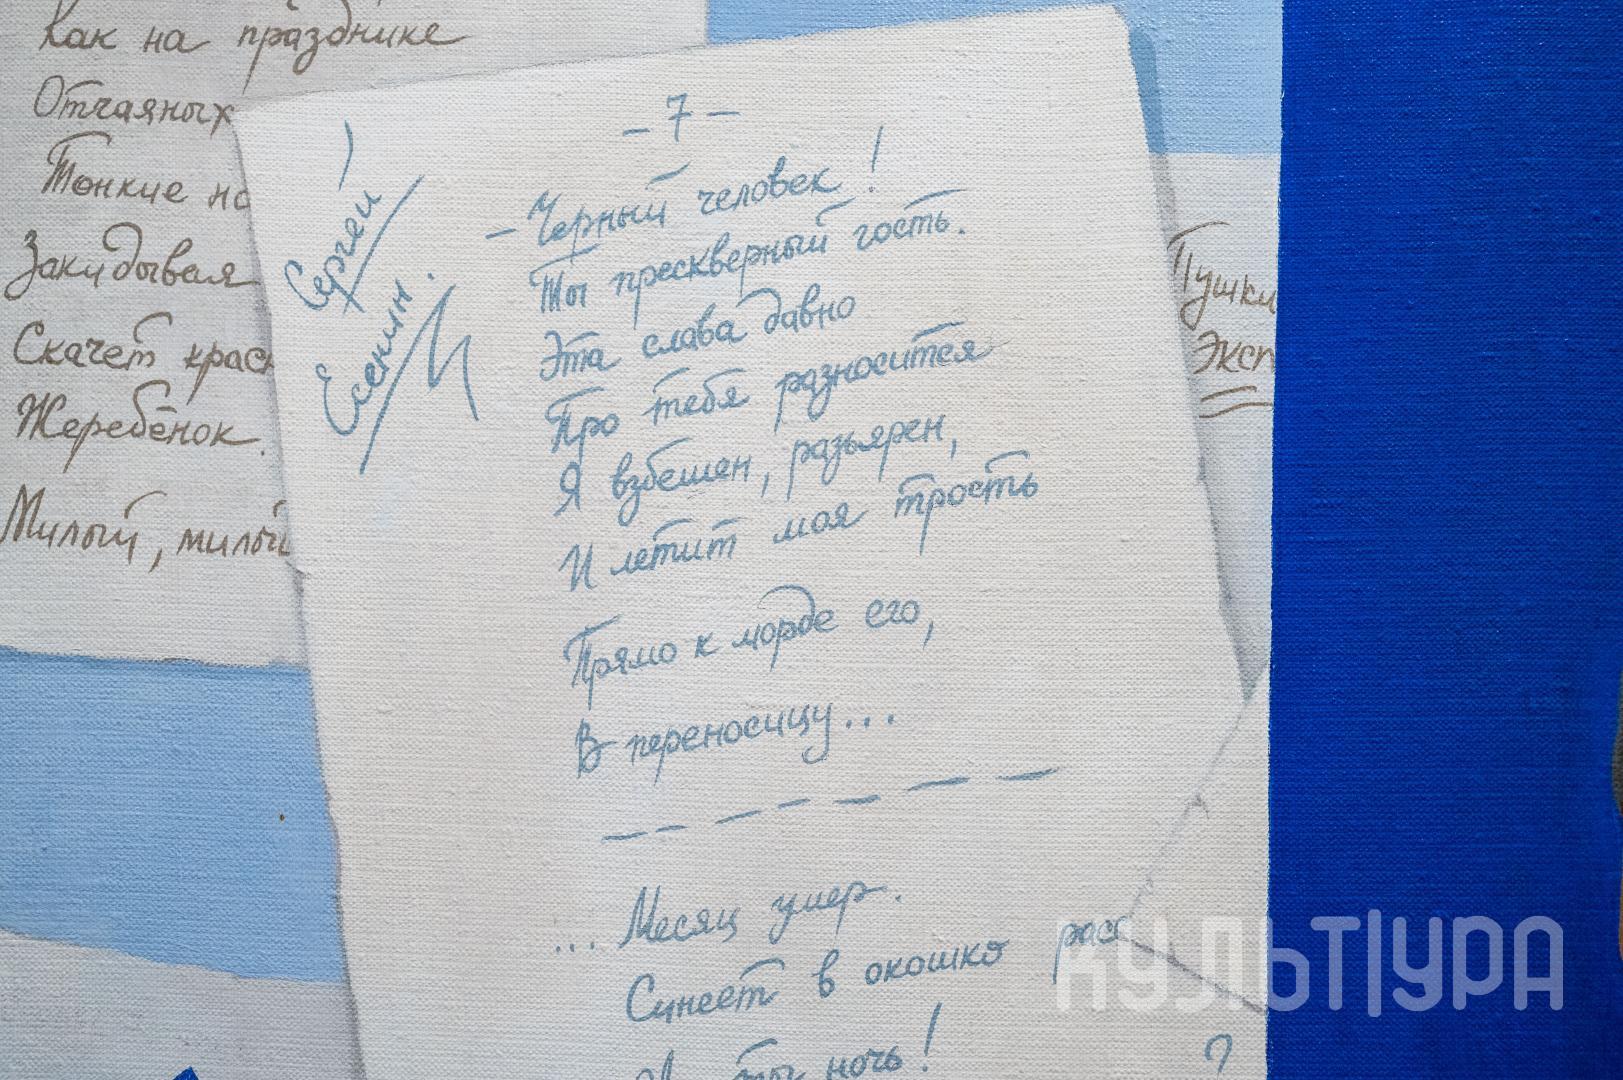 Как на празднике
Отчаяных
Тонкие но
Закидывая
Скачет крас
Жеребёнок.
Милый, милый
Сергей
Есенин.
- 7 -
- Черный человек!
Ты прескверный гость.
Эта слава давно
Про тебя разносится
Я взбешен, разъярен,
И летит моя трость
Прямо к морде его,
В переносицу...
...Месяц умер.
Синеет в окошко рас
ты ночь!
Пушки
Эксп
КУЛЬТУРА